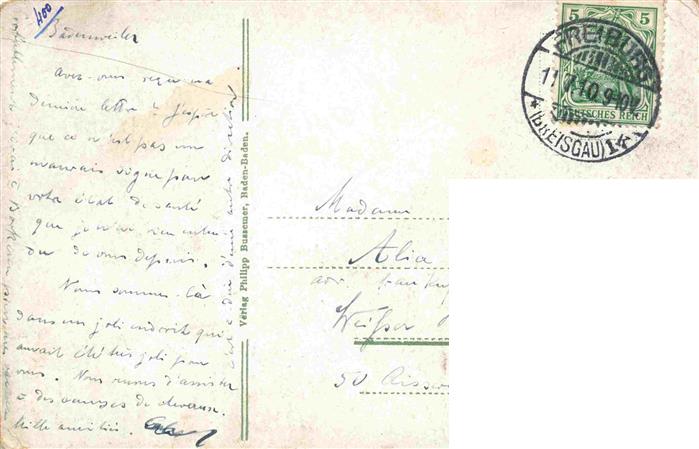 400
Badenweiler
Avez-vous reçu ma
dernière lettre? J'espère
que ce n'est pas un
mauvais signe pour
votre état de santé
que je n'ai rien enten-
du de vous depuis.
Nous sommes là
dans un joli endroit qui
aurait été très joli pour
vous. Nous venons d'assister
à des courses de chevaux.
Mille amitiés.
c'est à dire d'une autre direction
Verlag Philipp Bussemer, Baden-Baden.
5 5
DEUTSCHES REICH
FREIBURG
(BREISGAU)
Madame
Alia
Weisser
50